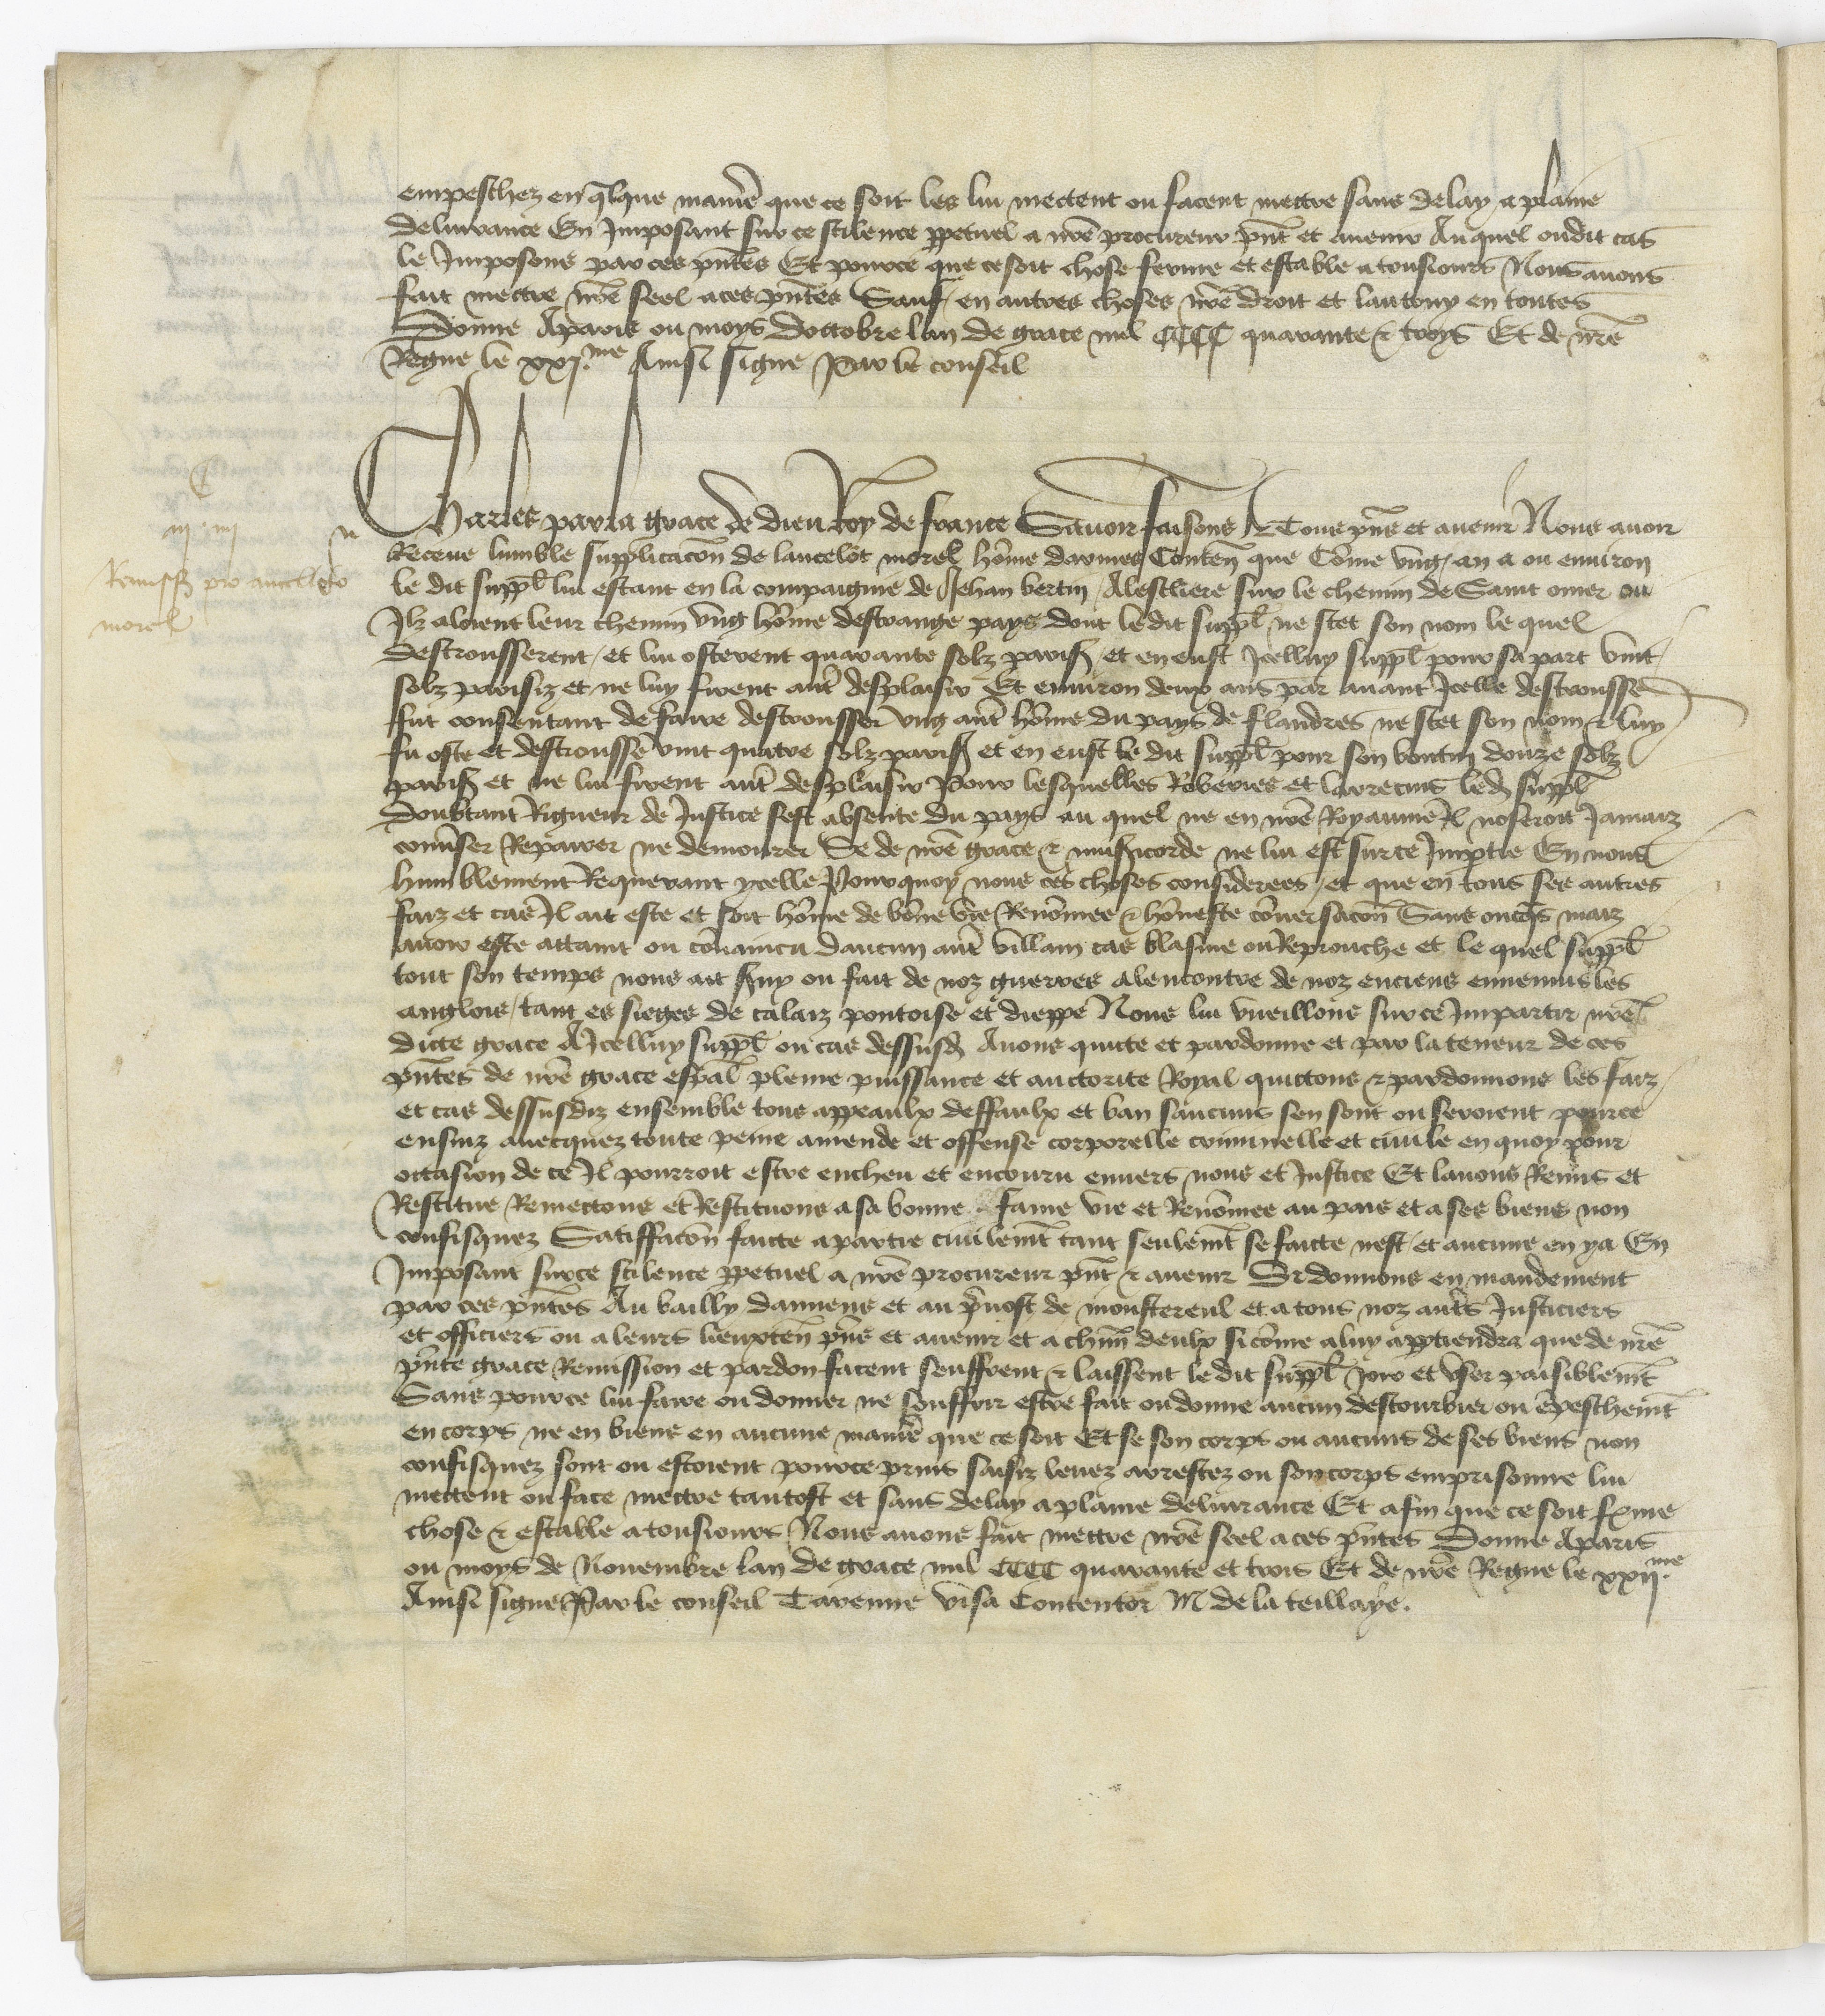 empeschez en qlque maniē que ce soit les lui mectent ou facent mectre sans delay a plaine
deliurance En Imposant sur ce scilence ppetuel a nrē procureur pn̄t et auenir Auquel oudit cas
le Imposons par ces pn̄tes Et pource que ce soit chose ferme et estable a tousiours Nous auons
fait mectre nrē seel a ces pn̄tes Sauf en autres choses nrē droit et lautruy en toutes
Donne A paris ou moys doctobre lan de grace mil CCCC quarante & troys Et de nrē
Regne le xxj.me Ainsi signe Par le conseil
Charles par la grace de dieu Roy de france Sauoir faisons A Tous pn̄s et auenir Nous auoir
Receue lumble supplicacōn de lancelot morel hōme darmes Conten̄ que Cōme vng an a ou enuiron
le dit suppl̄ lui estant en la compaignie de Jehan bertin A lestliere sur le chemin de Saint omer ou
Ilz aloient leur chemin vng hōme destrange pays dont le dit suppl̄ ne scet son nom le quel
destrousserent et lui osterent quarante solz paris et en eust Icelluy suppl̄ pour sa part vint
solz parisiz et ne luy firent aut̄ desplaisir Et enuiron deux ans par auant Icelle destrousse
fut consentant de faire destrousser vng aut̄ hōme du pays de flandres ne scet son nom & luy
fu oste et destrousse vint quatre solz paris et en eust le dit suppl̄ pour son boutin douze solz
paris et ne lui firent aut̄ desplaisir Pour lesquelles Roberies et larrecins led suppl̄
doubtant Rigueur de Justice sest absente du pays au quel ne en nrē Royaume Il noseroit Jamaiz
conuser Reparer ne demourer Se de nrē grace & misicorde ne lui est sur ce Imptie En nous
humblement Requerant ycelle Pourquoy nous ces choses considerees et que en tous ses autres
faiz et cas Il ait este et soit hōme de bōne vie Renōmee & hōneste cōuersacōn Sans oncqs maiz
auoir este attaint ou cōuaincu daucun aut̄ villain cas blasme ou Reprouche et le quel suppl̄
tout son temps nous ait seruy ou fait de noz guerres alencontre de noz enciens ennemis les
anglois tant es sieges de calaiz pontoise et dieppe Nous lui vueillons sur ce Impartir nrē
dicte grace A Icelluy suppl̄ ou cas dessusd Auons quicte et pardonne et par la teneur de ces
pn̄tes de nrē grace esp̄al pleine puissance et auctorite Royal quictons & pardonnons les faiz
et cas dessusdiz ensemble tous appeaulx deffaulx et ban saucuns sen sont ou seroient pource
ensuiz auecquez toute peine amende et offense corporelle criminelle et ciuile en quoy pour
occasion de ce Il pourroit estre encheu et encouru enuers nous et Justice Et lauons Remis et
Restitue Remectons et Restituons a sa bonne fame vie et Renōmee au pais et a ses biens non
confisquez Satiffacōn faicte a partie ciuilemt tant seulemt se faicte nest et aucune en ya En
Imposant sur ce scilence ppetuel a nrē procureur pn̄t & auenir Si donnons en mandement
par ces pn̄tes Au bailly damiens et au p̄uost de monstereul et a tous noz autrs Justiciers
et officiers ou a leurs lieuxten̄ pn̄s et auenir et a chūn deulx si cōme a luy apptiendra que de nrē
pn̄te grace Remission et pardon facent seuffrent & laissent le dit suppl̄ Joir et vser paisiblemt
Sans pource lui faire ou donner ne souffrir estre fait ou donne aucun destourbier ou ēpeschemt
en corps ne en biens en aucune maniē que ce soit Et se son corps ou aucuns de ses biens non
confisquez sont ou estoient pource prins saisiz leuez arrestez ou son corps emprisonne lui
mectent ou face mectre tantost et sans delay a plaine deliurance Et afin que ce soit fme
chose & estable a tousiours Nous auons fait mectre nrē seel a ces pn̄tes Donne A paris
ou moys de Nouembre lan de grace mil CCCC quarante et trois Et de nrē Regne le xxij.me
Ainsi signe Par le conseil Tarenne visa Contentor M de la teillaye.
iij iiij
Remiss pro ancelloto
morel